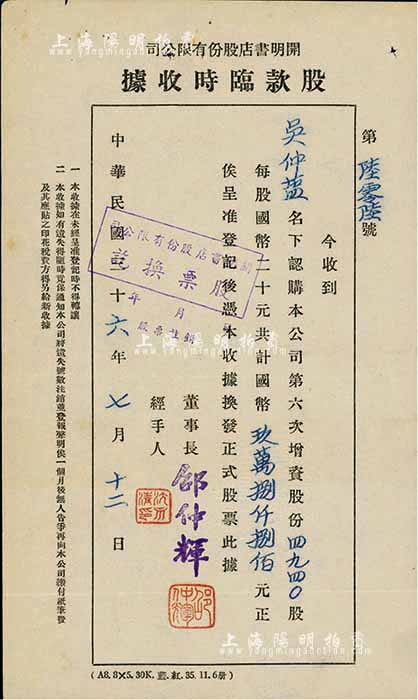 上海陽明拍賣
開明書店股份有限公司
股款臨時收據
第陸零陸號
今收到
吳仲鹽名下認購本公司第六次增資股份四九四〇股
每股國幣二十元共計國幣玖萬捌仟捌佰元正
俟呈准登記後憑本收據換發正式股票此據
董事長 邵仲輝
經手人
中華民國三十六年七月十二日
開明書店股份有限公司
訖換票股
年 月
一 本收據在未經呈准登記時不得轉讓
二 本收據如有遺失得隨時覓保通知本公司將遺失號數註銷並登報聲明俟一個月後無人告爭再向本公司繳付紙筆費
及其應貼之印花稅費方得另給新收據
(A8. 8×5. 30K. 藍. 紅. 35. 11. 6冊)
上海陽明拍賣